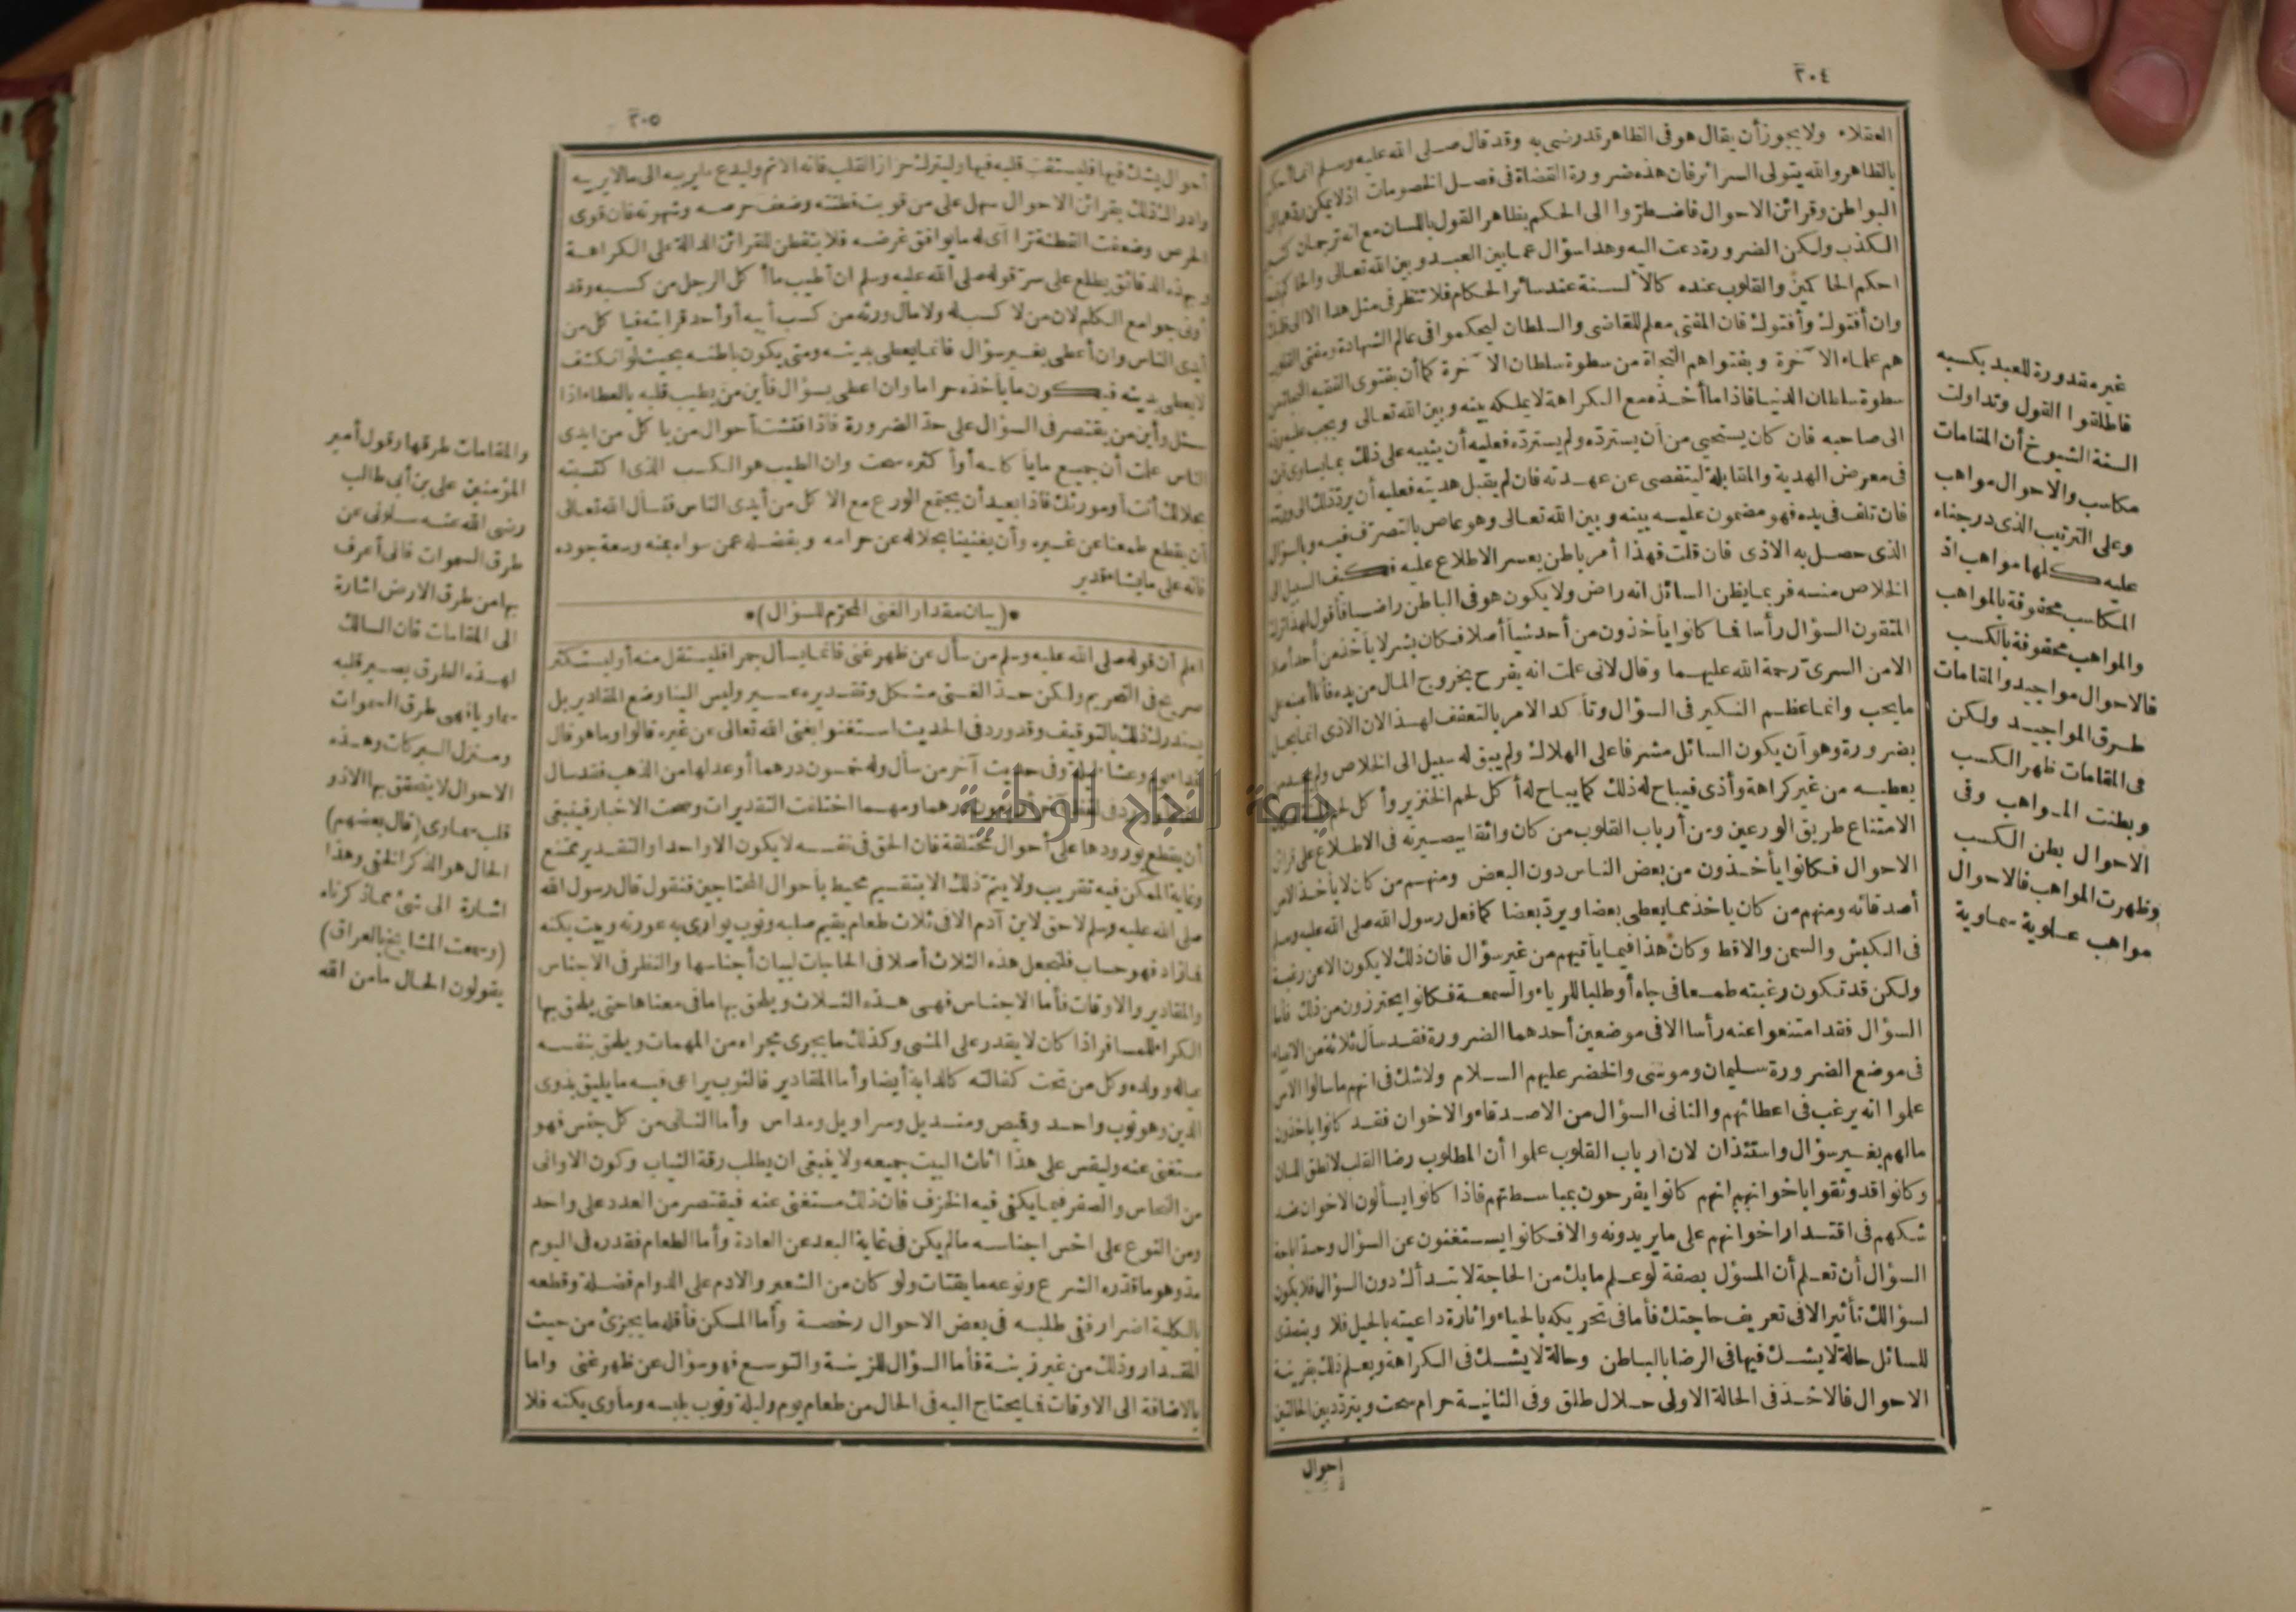 ٢٠٤
العقلاء ولا يجوز أن يقال هو فى الظاهر قد رضى به وقد قال صلى الله عليه وسلم انما أحكم
بالظاهر والله يتولى السرائر فان هذه ضرورة القضاة فى فصل الخصومات اذ لا يمكن ردهم الى
البواطن وقرائن الاحوال فاضطرّوا الى الحكم بظاهر القول باللسان مع انه ترجمان كثير
الكذب ولكن الضرورة دعت اليه وهذا سؤال عما بين العبد و بين الله تعالى والحاكم فيه
احكم الحاكمين والقلوب عنده كالألسنة عند سائر الحكام فلا تنظر فى مثل هذا الا الى قلبك
وان أفتوك وأفتوك فان المفتى معلم للقاضى والسلطان ليحكموا فى عالم الشهادة ومفتى القلوب
هم علماء الآخرة و بفتواهم النجاة من سطوة سلطان الآخرة كما أن بفتوى الفقيه النجاة من
سطوة سلطان الدنيا فاذا ما أخذه مع الكراهة لا يملكه بينه و بين الله تعالى ويجب عليه رده
الى صاحبه فان كان يستحيى من أن يستردّه ولم يستردّه فعليه أن يثيبه على ذلك بما يساوى
فى معرض الهدية والمقابلة ليتفصى عن عهدته فان لم يقبل هديته فعليه أن يردّ ذلك الى ورثته
فان تلف فى يده فهو مضمون عليه بينه و بين الله تعالى وهو عاص بالتصرّف فيه و بالسؤال
الذى حصل به الاذى فان قلت فهذا أمر باطن يعسر الاطلاع عليه فكيف السبيل الى
الخلاص منه فربما يظن السائل انه راض ولا يكون هو فى الباطن راضيا فأقول لهذا ترك
المتقون السؤال رأسا فما كانوا يأخذون من أحد شيأ أصلا فكان بشر لا يأخذ من أحد أصلا
الا من السرىّ رحمة الله عليهما وقال لانى علمت انه يفرح بخروج المال من يده فأنا أعينه على
ما يحب وانما عظم النكير فى السؤال وتأكد الامر بالتعفف لهذا لان الاذى انما يحل
بضرورة وهو أن يكون السائل مشرفا على الهلاك ولم يبق له سبيل الى الخلاص ولم يجد من
يعطيه من غير كراهة وأذى فيباح له ذلك كما يباح له أكل لحم الخنزير وأكل لحم
الامتناع طريق الورعين ومن أرباب القلوب من كان واثقا ببصيرته فى الاطلاع على قرائن
الاحوال فكانوا يأخذون من بعض الناس دون البعض ومنهم من كان لا يأخذ الا من
أصدقائه ومنهم من كان يأخذ مما يعطى بعضا ويردّ بعضا كما فعل رسول الله صلى الله عليه وسلم
فى الكبش والسمن والاقط وكان هذا فيما يأتيهم من غير سؤال فان ذلك لا يكون الا عن رغبة
ولكن قد تكون رغبته طمعا فى جاه أو طلبا للرياء والسمعة فكانوا يحترزون من ذلك فأما
السؤال فقد امتنعوا عنه رأسا الا فى موضعين أحدهما الضرورة فقد سأل ثلاثة من الانبياء
فى موضع الضرورة سليمان وموسى والخضر عليهم السلام ولا شك فى انهم ما سألوا الا من
علموا انه يرغب فى اعطائهم والثانى السؤال من الاصدقاء والاخوان فقد كانوا يأخذون
مالهم بغير سؤال واستئذان لان أرباب القلوب علموا أن المطلوب رضا القلب لا نطق اللسان
وكانوا قد وثقوا باخوانهم انهم كانوا يفرحون بمباسطتهم فاذا كانوا يسألون الاخوان عند
شكهم فى اقتدار اخوانهم على ما يريدونه والا فكانوا يستغنون عن السؤال وحدّ اباحة
السؤال أن تعلم أن المسؤل بصفة لو علم ما بك من الحاجة لابتدأك دون السؤال فلا يكون
لسؤالك تأثير الا فى تعريف حاجتك فأما فى تحريكه بالحياء واثارة داعيته بالحيل فلا ويتصدى
للسائل حالة لا يشك فيها فى الرضا بالباطن وحالة لا يشك فى الكراهة ويعلم ذلك بقرينة
الاحوال فالاخذ فى الحالة الاولى حلال طلق وفى الثانية حرام سحت ويتردّد بين الحالتين
أحوال
غير مقدورة للعبد بكسبه
فاطلقوا القول وتداولت
السنة الشيوخ أن المقامات
مكاسب والاحوال مواهب
وعلى الترتيب الذى درجناه
عليه كلها مواهب اذ
المكاسب محفوفة بالمواهب
والمواهب محفوفة بالكسب
فالاحوال مواجيد والمقامات
طرق المواجيد ولكن
فى المقامات ظهر الكسب
وبطنت المواهب وفى
الاحوال بطن الكسب
وظهرت المواهب فالاحوال
مواهب علوية سماوية
٢٠٥
أحوال يشك فيها فليستفت قلبه فيها وليترك حزاز القلب فانه الاثم وليدع ما يريبه الى ما لا يريبه
وادراك ذلك بقرائن الاحوال سهل على من قويت فطنته وضعف حرصه وشهوته فان قوى
الحرص وضعفت الفطنة تراآى له ما يوافق غرضه فلا يتفطن للقرائن الدالة على الكراهة
وبهذه الدقائق يطلع على سرّ قوله صلى الله عليه وسلم ان أطيب ما أكل الرجل من كسبه وقد
أوتى جوامع الكلم لان من لا كسب له ولا مال ورثه من كسب أبيه أو أحد قرابته فيأكل من
أيدى الناس وان أعطى بغير سؤال فانما يعطى بدينه ومتى يكون باطنه بحيث لو انكشف
لا يعطى بدينه فيكون ما يأخذه حراما وان اعطى بسؤال فأين من يطيب قلبه بالعطاء اذا
سئل وأين من يقتصر فى السؤال على حدّ الضرورة فاذا فتشت أحوال من يأكل من ايدى
الناس علمت أن جميع ما يأكله أو أكثره سحت وان الطيب هو الكسب الذى اكتسبته
بحلالك أنت أو مورثك فاذا بعيد أن يجتمع الورع مع الاكل من أيدى الناس فنسأل الله تعالى
أن يقطع طمعنا عن غيره وأن يغنينا بحلاله عن حرامه و بفضله عمن سواه بمنه وسعة جوده
فانه على ما يشاء قدير
*(بيان مقدار الغنى المحرّم للسؤال)*
اعلم أن قوله صلى الله عليه وسلم من سأل عن ظهر غنى فانما يسأل جمرا فليستقل منه أو ليستكثر
صريح فى التحريم ولكن حدّ الغنى مشكل وتقديره عسير وليس الينا وضع المقادير بل
يستدرك ذلك بالتوقيف وقد ورد فى الحديث استغنوا بغنى الله تعالى عن غيره قالوا وما هو قال
غداء يوم وعشاء ليلة وفى حديث آخر من سأل وله خمسون درهما أو عدلها من الذهب فقد سأل
ورد فى لفظ آخر أربعون درهما ومهما اختلفت التقديرات وصحت الاخبار فينبغى
أن يقطع بورودها على أحوال مختلفة فان الحق فى نفسه لا يكون الا واحدا والتقدير ممتنع
وغاية الممكن فيه تقريب ولا يتمّ ذلك الا بتقسيم محيط بأحوال المحتاجين فنقول قال رسول الله
صلى الله عليه وسلم لا حق لابن آدم الا فى ثلاث طعام يقيم صلبه وثوب يوارى به عورته وبيت يكنه
فما زاد فهو حساب فلنجعل هذه الثلاث أصلا فى الحاجات لبيان أجناسها والنظر فى الاجناس
والمقادير والاوقات فأما الاجناس فهى هذه الثلاث ويلحق بها ما فى معناها حتى يلحق بها
الكراء للمسافر اذا كان لا يقدر على المشى وكذلك ما يجرى مجراه من المهمات ويلحق بنفسه
عياله وولده وكل من تحت كفالته كالدابة أيضا وأما المقادير فالثوب يراعى فيه ما يليق بذوى
الدين وهو ثوب واحد وقميص ومنديل وسراويل ومداس وأما الثانى من كل جنس فهو
مستغنى عنه وليقس على هذا اثاث البيت جميعه ولا ينبغى ان يطلب رقة الثياب وكون الاوانى
من النحاس والصفر فيما يكفى فيه الخزف فان ذلك مستغنى عنه فيقتصر من العدد على واحد
ومن النوع على اخس اجناسه ما لم يكن فى غاية البعد عن العادة وأما الطعام فقدره فى اليوم
مدّ وهو ما قدّره الشرع ونوعه ما يقتات ولو كان من الشعير والادم على الدوام فضلة وقطعه
بالكلية اضرار ففى طلبه فى بعض الاحوال رخصة وأما المسكن فأقله ما يجزئ من حيث
المقدار وذلك من غير زينة فأما السؤال للزينة والتوسع فهو سؤال عن ظهر غنى واما
بالاضافة الى الاوقات فما يحتاج اليه فى الحال من طعام يوم وليلة وثوب يلبسه ومأوى يكنه فلا
والمقامات طرقها وقول أمير
المؤمنين على بن أبى طالب
رضى الله عنه سلونى عن
طرق السموات فانى أعرف
بها من طرق الارض اشارة
الى المقامات فان السالك
لهذه الطرق يصير قلبه
سماويا فهى طرق السموات
ومتنزل البركات وهذه
الاحوال لا يتحقق بها الا ذو
قلب سماوى (قال بعضهم)
الحال هو الذكر الخفى وهذا
اشارة الى شئ مما ذكرناه
(وسمعت المشايخ بالعراق)
يقولون الحال ما من الله
جامعة النجاح الوطنية